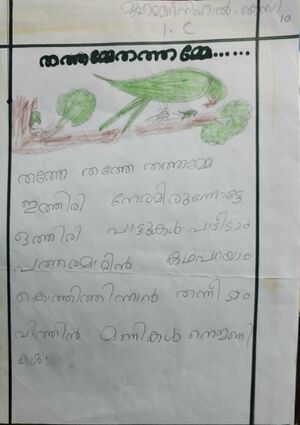 മുഹമ്മദ് നിഹാൽ.കെ.സി
1. C
10
തത്തമ്മേതത്തമ്മേ......
തത്തേ തത്തേ തത്തമ്മേ
ഇത്തിരി നേരമിരുന്നോട്ടേ
ഒത്തിരി പാട്ടുകൾ പാടീടാം
പത്തരമാറ്റിൻ കഥപറയാം
കൊത്തിത്തിന്നാൻ തന്നീടാം
വിത്തിൻ മണികൾ നെന്മണി
കൾ.